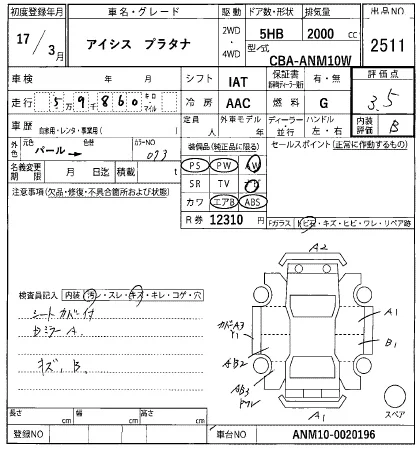 初度登録年月 車名・グレード 駆動 ドア数・形状 排気量 出品NO
17/3月 アイシス プラタナ 2WD・4WD 5HB 2000 cc 2511
型/式 CBA-ANM10W
車検 年 月 シフト IAT 保証書 有・無 評価点
走行 5万9千860 キロ・マイル 冷房 AAC 燃料 G 3.5
車歴 自家用・レンタ・事業用( ) 定員 人 外車モデル 年 ディーラー・並行 ハンドル 左・右 内装評価 B
外色 元色 パール 色替 カラーNO 073 装備品(純正品に限る) セールスポイント(正常に動作するもの)
名義変更期限 月 日迄 積載 t PS PW AW
注意事項(欠品・修復・不具合箇所および状態) SR TV ナビ
カワ エアB ABS
R券 12310 円 Fガラス ヒビ石・キズ・ヒビ・ワレ・リペア跡
A2
検査員記入 内装 汚レ・スレ・キズ・キレ・コゲ・穴
シートカバー付
A3 Y1 A1
AB2 B1
キズ、B.
AB3
A1
スペア
長さ cm 幅 cm 高さ cm
登録NO 車台NO ANM10-0020196